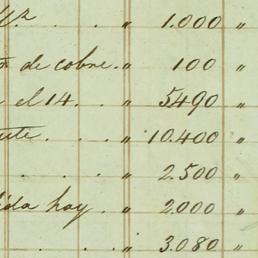 1/2 . . . " 1.000 "
de cobre. " 100 "
el 14. . " 5490 "
. . . " 10.400 "
. . . " 2.500 "
hay. . " 2.000 "
. . " 3.080 "